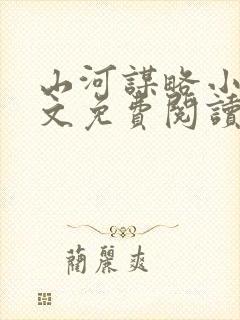 山河謀略小
文免費閱讀
蘭麗爽